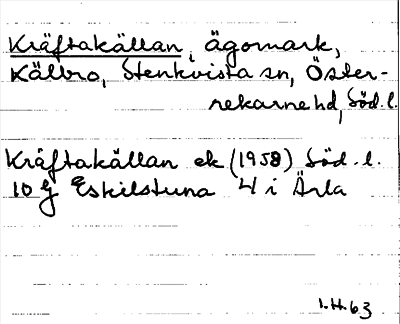 Kräftakällan, ägomark,
Källbro, Stenkvista sn, Öster-
rekarne hd, Söd. l.
Kräftakällan ek (1958) Söd. l.
10 g Eskilstuna 4 i Ärla
I.H. 63